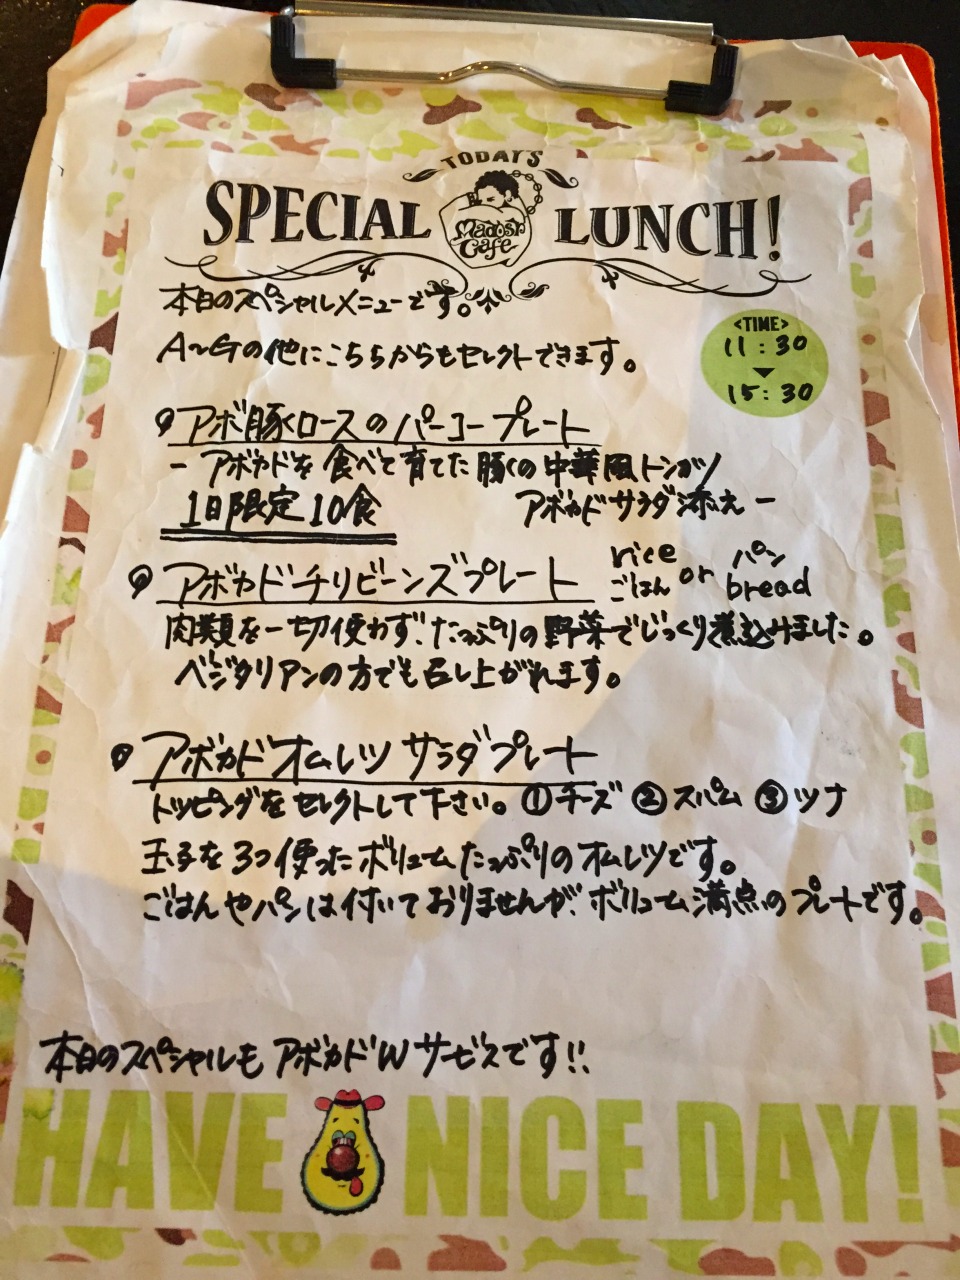 TODAY'S
SPECIAL LUNCH!
Madosh! Cafe
本日のスペシャルメニューです。
A〜Gの他にこちらからもセレクトできます。
<TIME>
11:30
▼
15:30
アボ豚くロースのパーコープレート
ー アボカドを食べて育てた豚くの中華風トンカツ
1日限定10食 アボカドサラダ添え ー
アボカドチリビーンズプレート rice ごはん or パン bread
肉類を一切使わず、たっぷりの野菜でじっくり煮込みました。
ベジタリアンの方でも召し上がれます。
アボカドオムレツ サラダプレート
トッピングをセレクトして下さい。①チーズ ②スパム ③ツナ
玉子を3つ使ったボリュームたっぷりのオムレツです。
ごはんやパンは付いておりませんが、ボリューム満点のプレートです。
本日のスペシャルも アボカドW サービスです!!
HAVE NICE DAY!